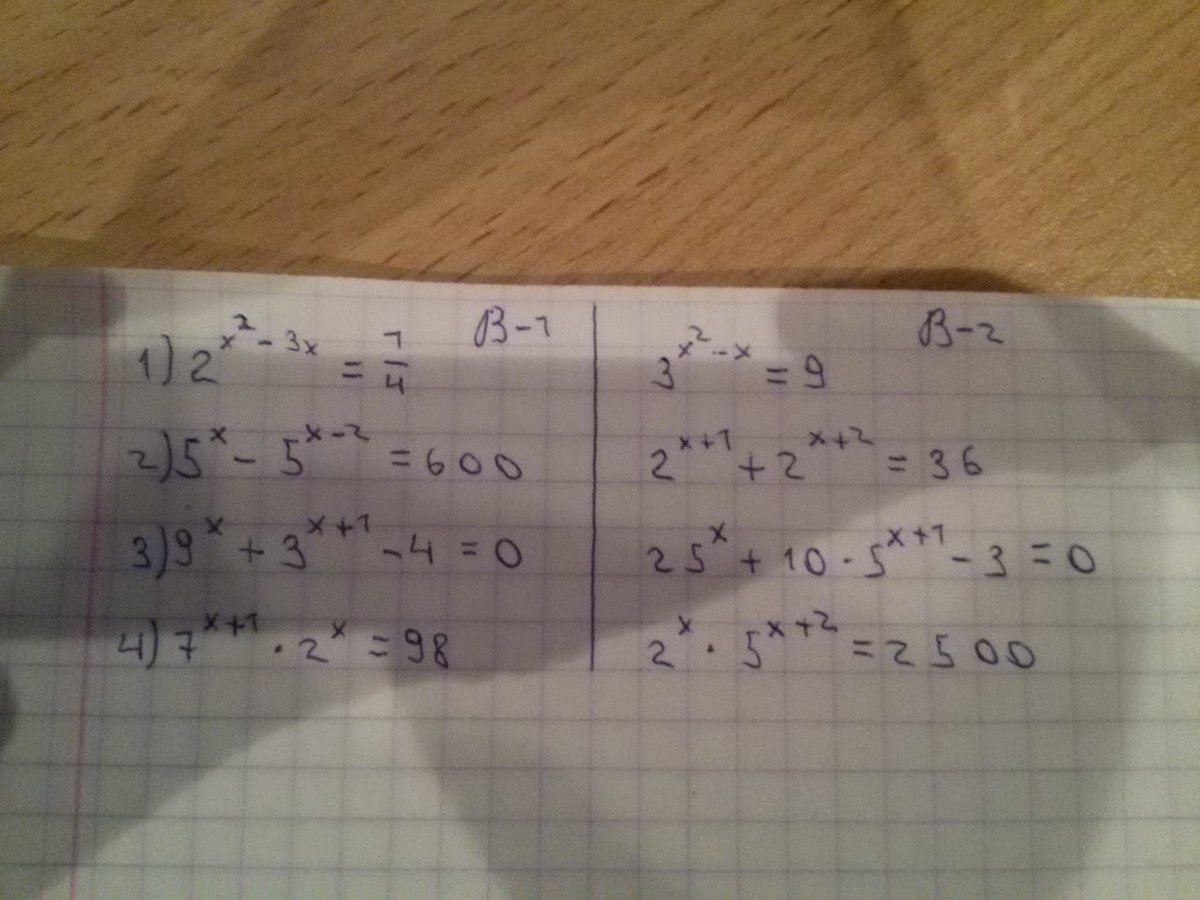 В-1
1) 2^{x^2-3x} = 1/4
2) 5^x - 5^{x-2} = 600
3) 9^x + 3^{x+1} - 4 = 0
4) 7^{x+1} · 2^x = 98
В-2
3^{x^2-x} = 9
2^{x+1} + 2^{x+2} = 36
25^x + 10 · 5^{x+1} - 3 = 0
2^x · 5^{x+2} = 2500